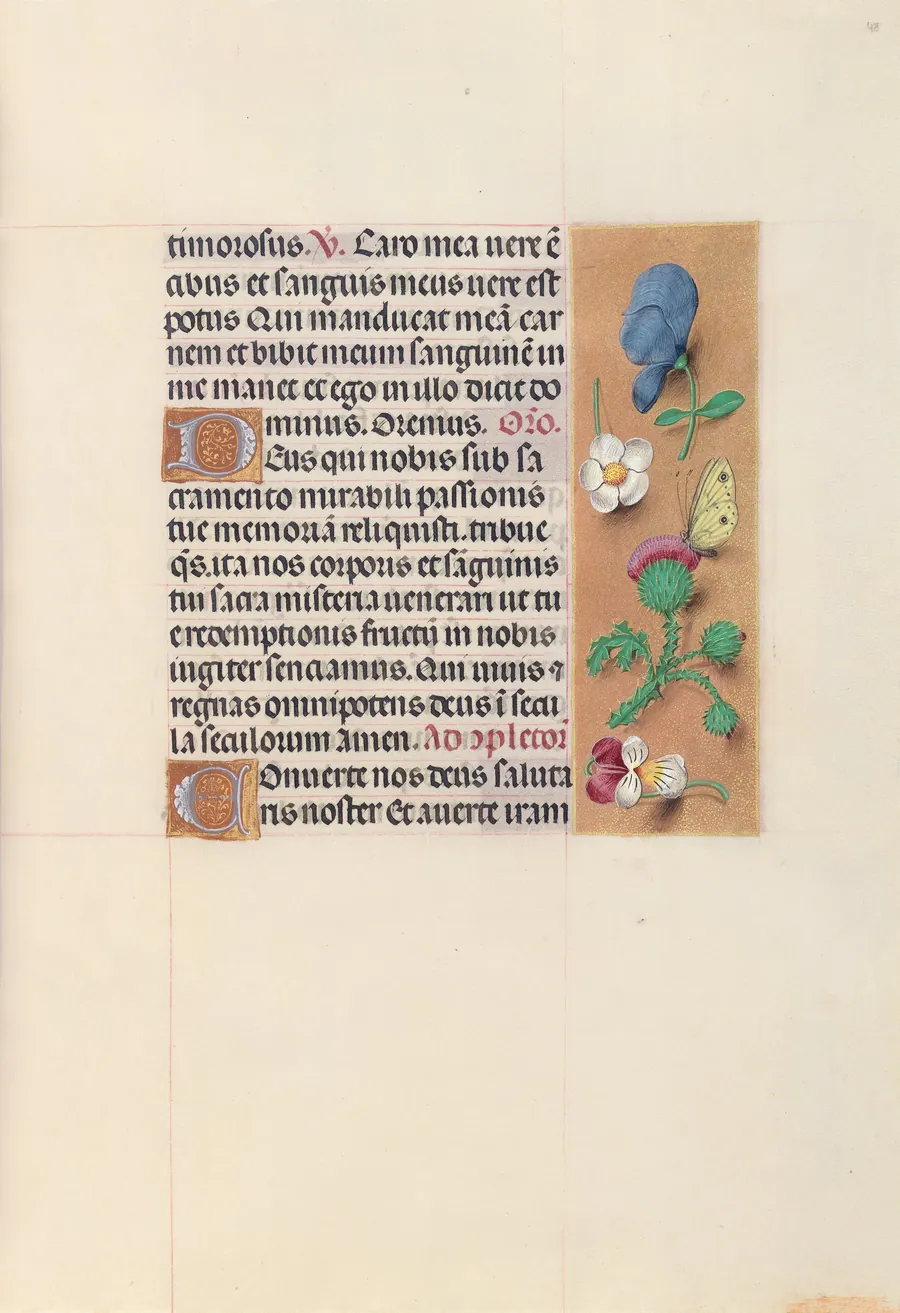 48
timorosus. V. Caro mea uere ē
cibus et sanguis meus uere est
potus Qui manducat meā car
nem et bibit meum sanguinē in
me manet et ego in illo dicit do
minus. Oremus. Orō.
Deus qui nobis sub sa
cramento mirabili passionis
tue memoriā reliquisti. tribue
q̄s. ita nos corporis et sāguinis
tui sacra misteria uenerari ut tu
e redemptionis fructū in nobis
iugiter senciamus. Qui uiuis ⁊
regnas omnipotens deus ī secu
la seculorum Amen. Ad ↄpletoř
Conuerte nos deus saluta
ris noster Et auerte iram